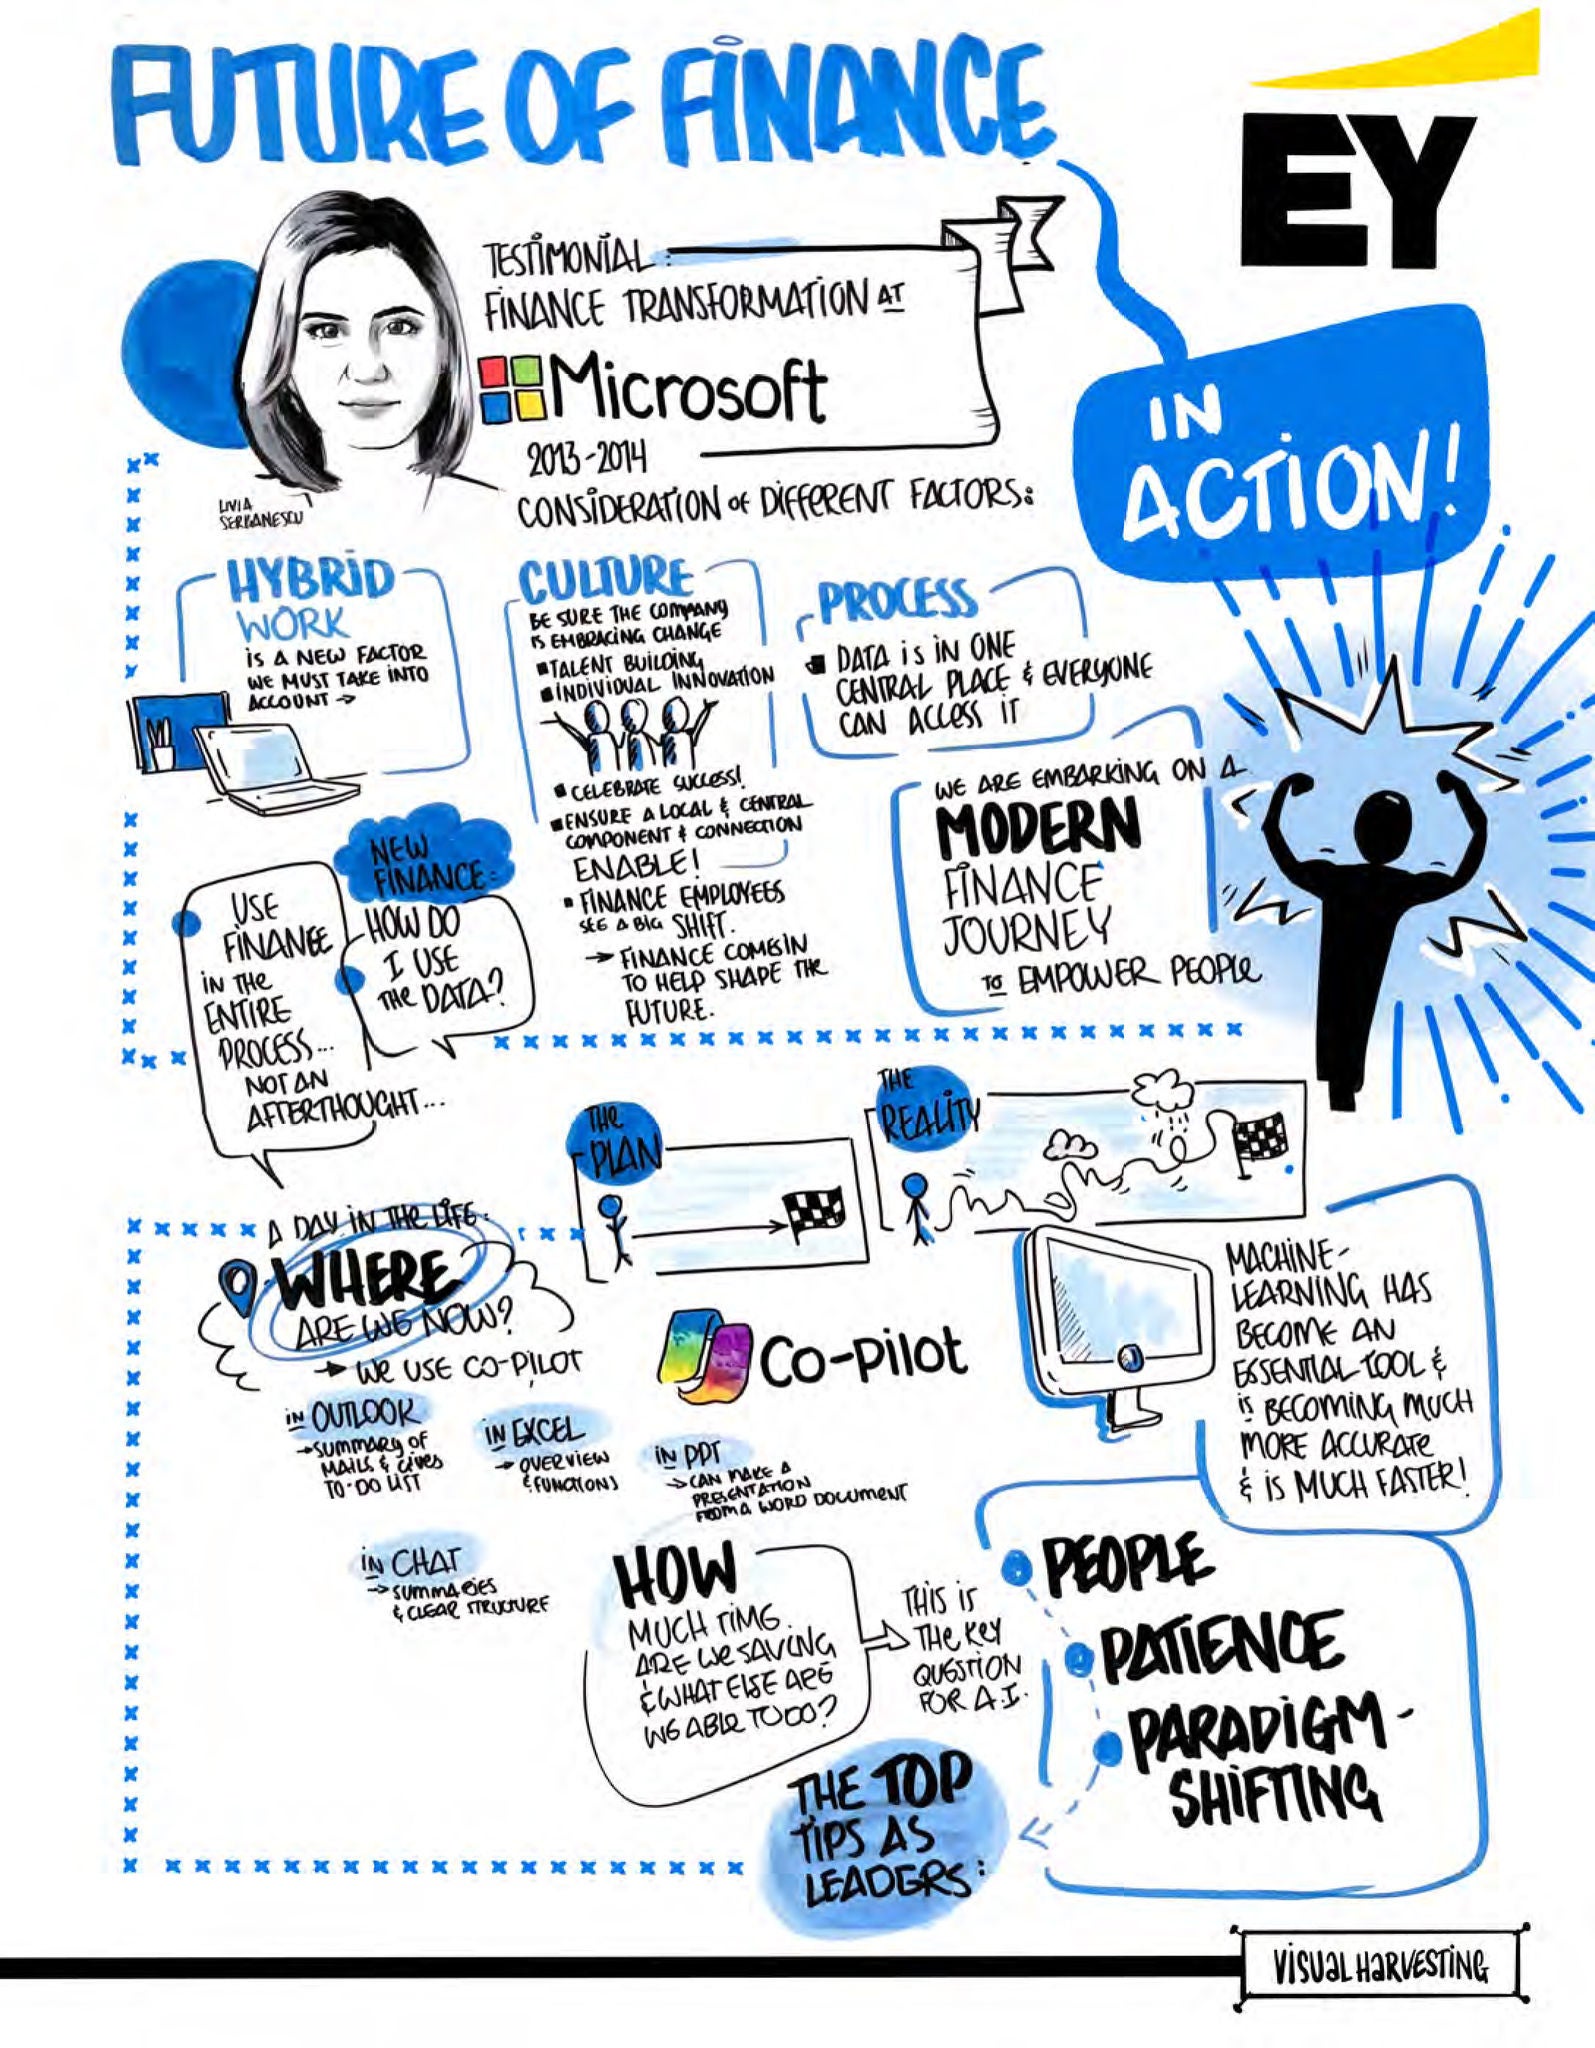 FUTURE OF FINANCE
EY
IN
ACTION!
TESTIMONIAL
FINANCE TRANSFORMATION AT
Microsoft
2013-2014
CONSIDERATION OF DIFFERENT FACTORS:
LIVIA
SERBANESCU
HYBRID
WORK
IS A NEW FACTOR
WE MUST TAKE INTO
ACCOUNT →
CULTURE
BE SURE THE COMPANY
IS EMBRACING CHANGE
▪ TALENT BUILDING
▪ INDIVIDUAL INNOVATION
▪ CELEBRATE SUCCESS!
▪ ENSURE A LOCAL & CENTRAL
COMPONENT & CONNECTION
ENABLE!
▪ FINANCE EMPLOYEES
SEE A BIG SHIFT.
→ FINANCE COMES IN
TO HELP SHAPE THE
FUTURE.
PROCESS
▪ DATA IS IN ONE
CENTRAL PLACE & EVERYONE
CAN ACCESS IT
WE ARE EMBARKING ON A
MODERN
FINANCE
JOURNEY
TO EMPOWER PEOPLE
NEW
FINANCE:
USE
FINANCE
IN THE
ENTIRE
PROCESS...
NOT AN
AFTERTHOUGHT...
HOW DO
I USE
THE DATA?
THE
PLAN
THE
REALITY
A DAY IN THE LIFE:
WHERE
ARE WE NOW?
→ WE USE CO-PILOT
Co-pilot
IN OUTLOOK
→ SUMMARY OF
MAILS & GIVES
TO-DO LIST
IN EXCEL
→ OVERVIEW
& FUNCTIONS
IN PPT
→ CAN MAKE A
PRESENTATION
FROM A WORD DOCUMENT
IN CHAT
→ SUMMARIES
& CLEAR STRUCTURE
MACHINE-
LEARNING HAS
BECOME AN
ESSENTIAL TOOL &
IS BECOMING MUCH
MORE ACCURATE
& IS MUCH FASTER!
HOW
MUCH TIME
ARE WE SAVING
& WHAT ELSE ARE
WE ABLE TO DO?
THIS IS
THE KEY
QUESTION
FOR A.I.
THE TOP
TIPS AS
LEADERS:
PEOPLE
PATIENCE
PARADIGM-
SHIFTING
VISUAL HARVESTING